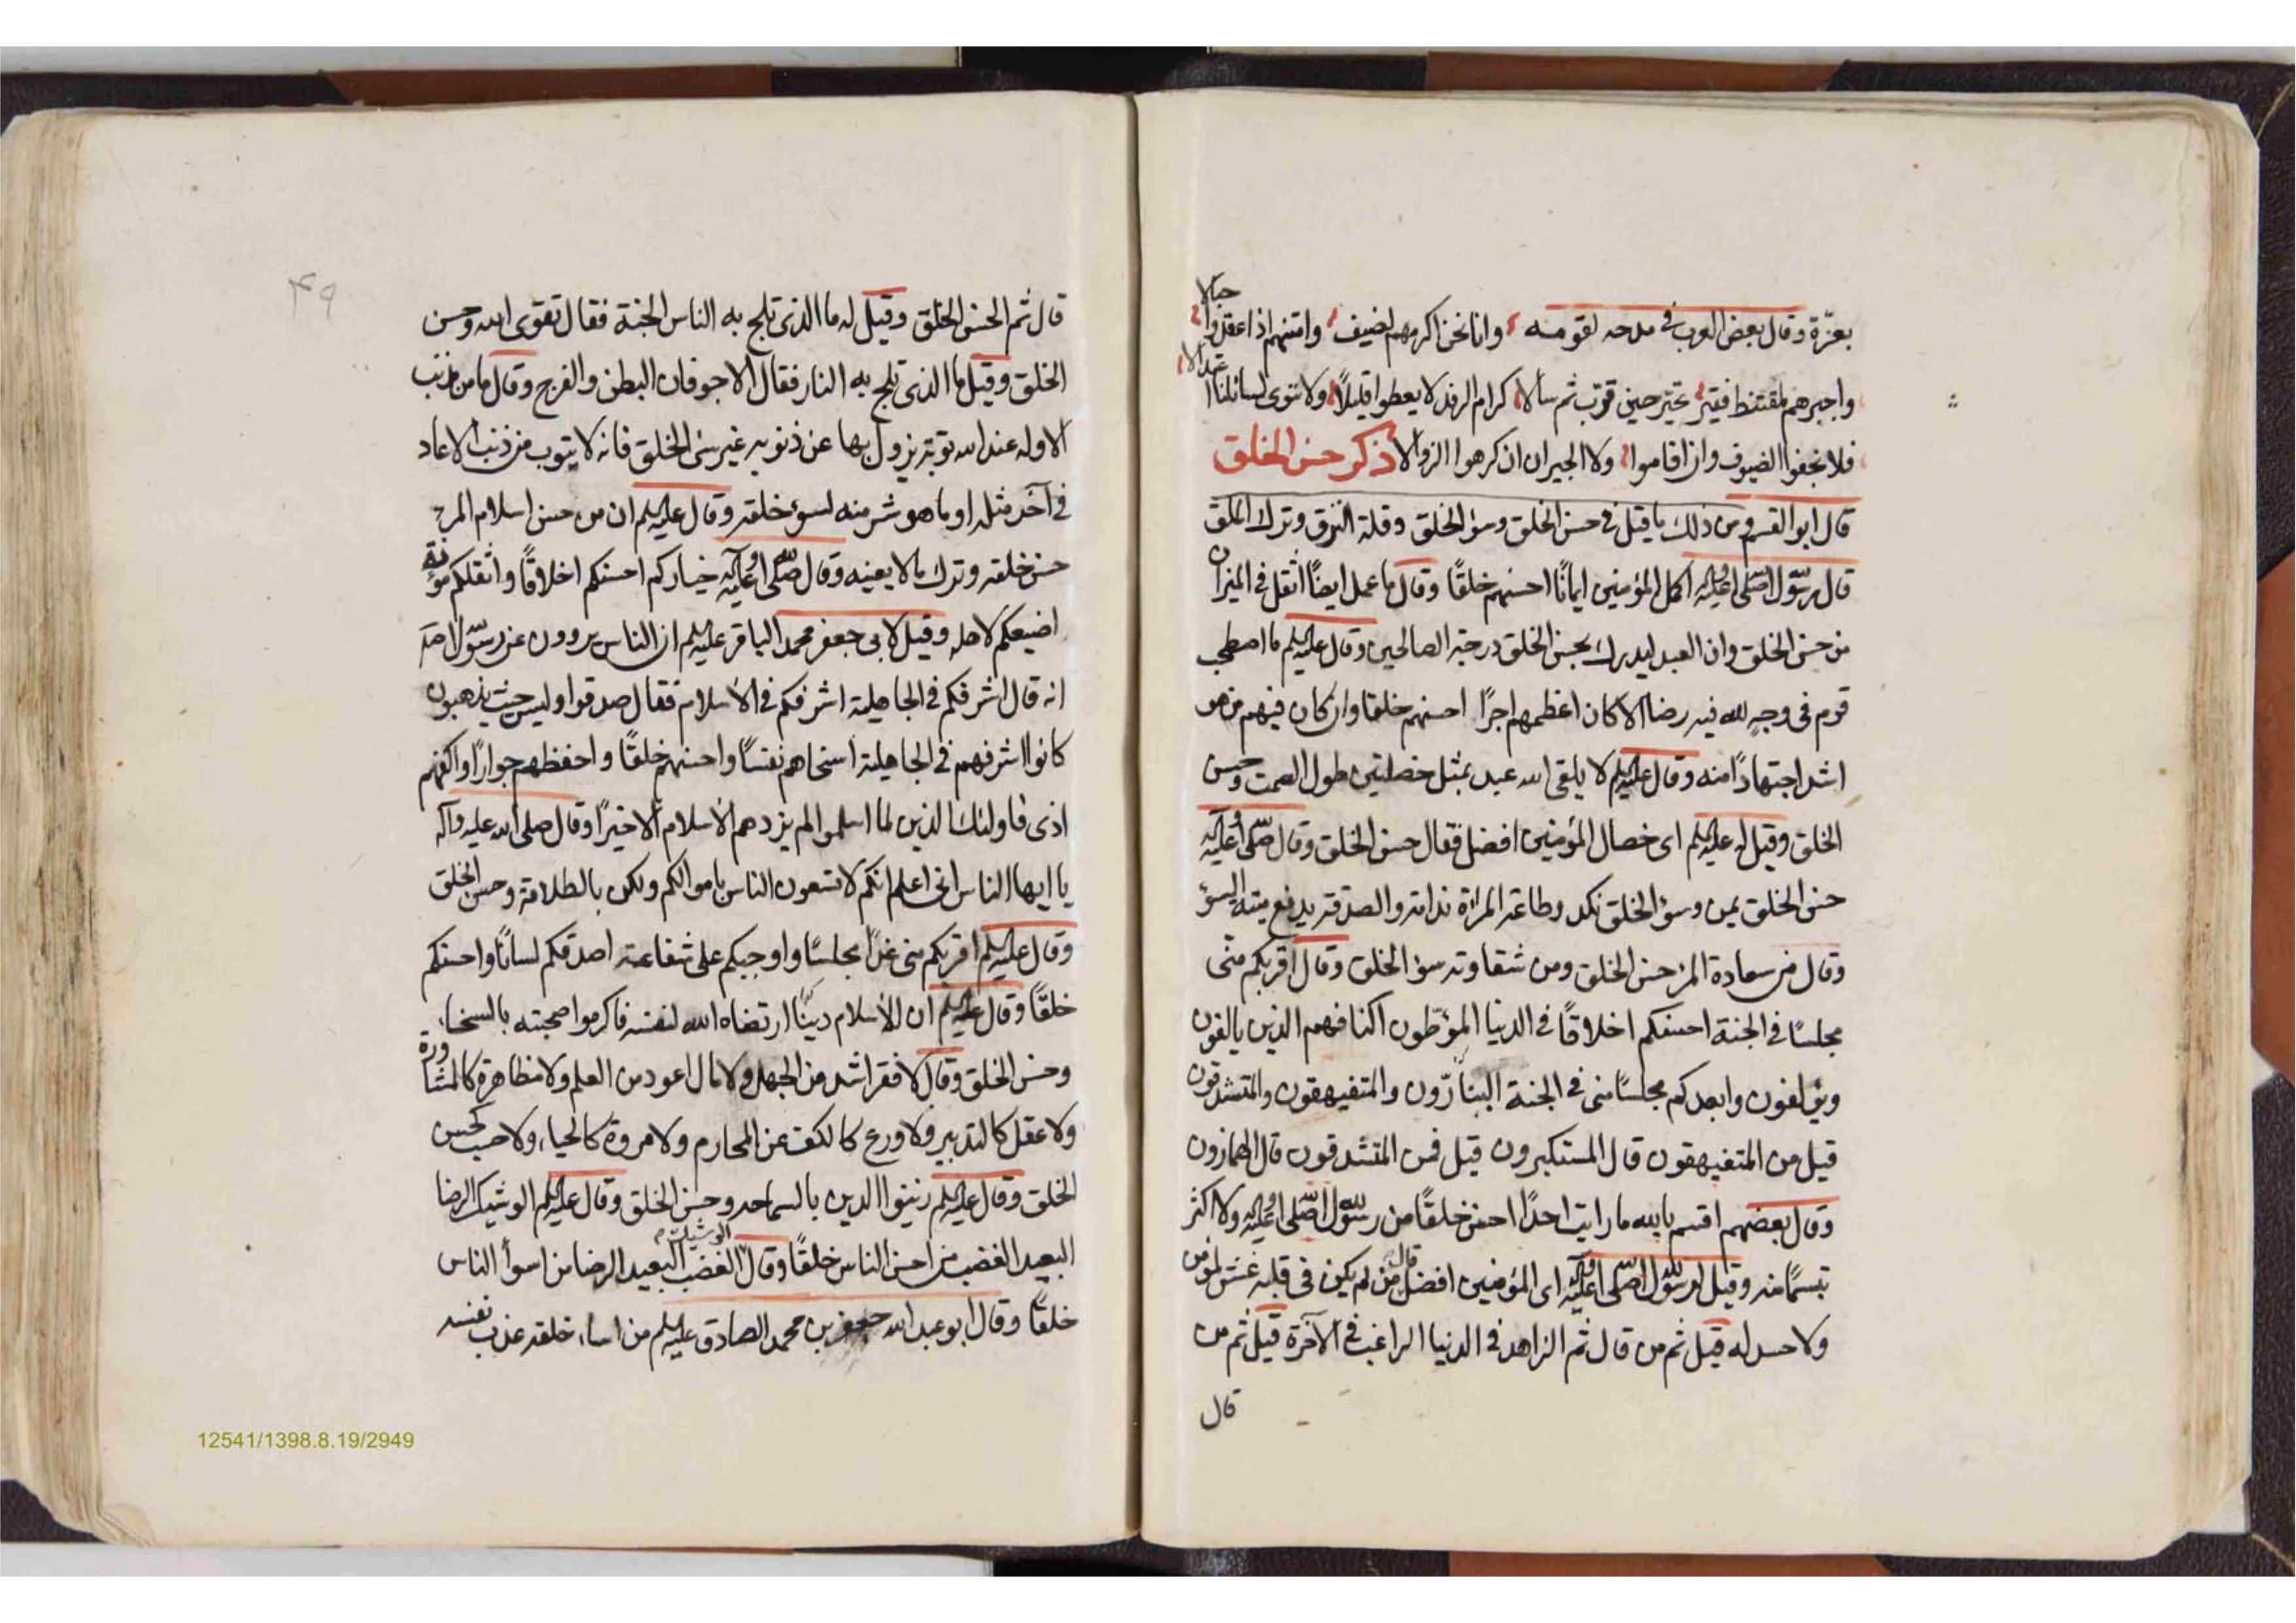 بعزّة وقال بعض العرب فى مدحه لقومه وانا نحن اكرمهم لضيف وامتنهم اذا عقدوا حبالا
واجبرهم لمقتنط فقير بحتر حين قرّب ثم سالا كرام الرفد لا يعطوا قليلاً ولا نتوى لسائلنا
فلا نجفوا الضيوف وان اقاموا ولا الجيران ان كرهوا الزوالا ذكر حسن الخلق
قال ابو القسم ومن ذلك ما قيل فى حسن الخلق وسؤ الخلق وقلة النزق وترك الملق
قال رسول الله صلى الله عليه وآله اكمل المؤمنين ايمانًا احسنهم خلقًا وقال ما عمل ايضًا اثقل فى الميزان
من حسن الخلق وان العبد ليدرك بحسن الخلق درجة الصالحين وقال عليه السلم ما اصطحب
قوم فى وجهٍ لله فيه رضا الا كان اعظمهم اجرًا احسنهم خلقا وان كان فيهم من هو
اشد اجتهادًا منه وقال عليه السلم لا يلقى الله عبد بمثل خصلتين طول الصمت وحسن
الخلق وقيل له عليه السلم اى خصال المؤمنين افضل فقال حسن الخلق وقال صلى الله عليه وآله
حسن الخلق يمن وسؤ الخلق نكد وطاعة المراة ندامة والصدقة يدفع ميتة السؤ
وقال من سعادة المرء حسن الخلق ومن شقاوته سوء الخلق وقال اقربكم منّى
مجلسًا فى الجنة احسنكم اخلاقًا فى الدنيا المؤطّون اكنافهم الذين يالفون
ويؤلفون وابعدكم مجلسًا منى فى الجنة الثرثارّون والمتفيهقون والمتشدقون
قيل من المتفيهقون قال المستكبرون قيل فمن المتشدقون قال الهمازون
وقال بعضهم اقسم بالله ما رايت احدًا احسن خلقًا من رسول الله صلى الله عليه وآله ولا اكثر
تبسّمًا منه وقيل لرسول الله صلى الله عليه وآله اى المؤمنين افضل قال من لم يكن فى قلبه غش لمؤمن
ولا حسد له قيل ثم من قال ثم الزاهد فى الدنيا الراغب فى الآخرة قيل ثم من
قال
۴۹
قال ثم الحسن الخلق وقيل له ما الذى تلج به الناس الجنة فقال تقوى الله وحسن
الخلق وقيل ما الذى تلج به النار فقال الاجوفان البطن والفرج وقال ما من ذنب
الا وله عند الله توبة يزول بها عن ذنوبه غير سئ الخلق فانه لا يتوب من ذنب الا عاد
فى آخر مثله او ما هو شر منه لسوء خلقه وقال عليه السلم ان من حسن اسلام المرء
حسن خلقه وترك ما لا يعينه وقال صلى الله عليه وآله خياركم احسنكم اخلاقًا واثقلكم مؤنة
اضيعكم لاهله وقيل لابى جعفر محمد الباقر عليه السلم ان الناس يروون عن رسول الله صلّى
انه قال اشرفكم فى الجاهلية اشرفكم فى الاسلام فقال صدقوا وليس حيث يذهبون
كانوا اشرفهم فى الجاهلية اسخاهم نفسًا واحسنهم خلقًا واحفظهم جوارًا واكفهم
اذى فاولئك الذين لما اسلموا لم يزدهم الاسلام الا خيرًا وقال صلى الله عليه وآله
يا ايها الناس انى اعلم انكم لا تسعون الناس باموالكم ولكن بالطلاقة وحسن الخلق
وقال عليه السلم اقربكم منى غدًا مجلسًا واوجبكم على شفاعة اصدقكم لسانًا واحسنكم
خلقًا وقال عليه السلم ان الاسلام دينًا ارتضاه الله لنفسه فاكرموا صحبته بالسخاء
وحسن الخلق وقال لا فقر اشد من الجهل ولا مال اعود من العلم ولا مظاهرة كالمشاورة
ولا عقل كالتدبير ولا ورع كالكف عن المحارم ولا مروة كالحياء ولا حسب كحسن
الخلق وقال عليه السلم زينوا الدين بالسماحة وحسن الخلق وقال عليه السلم الوشيك الرضا
البعيد الغضب من احسن الناس خلقًا وقال الوشيك الغضب البعيد الرضا من اسوأ الناس
خلقًا وقال ابو عبد الله جعفر بن محمد الصادق عليه السلم من اساء خلقه عذب نفسه
12541/1398.8.19/2949